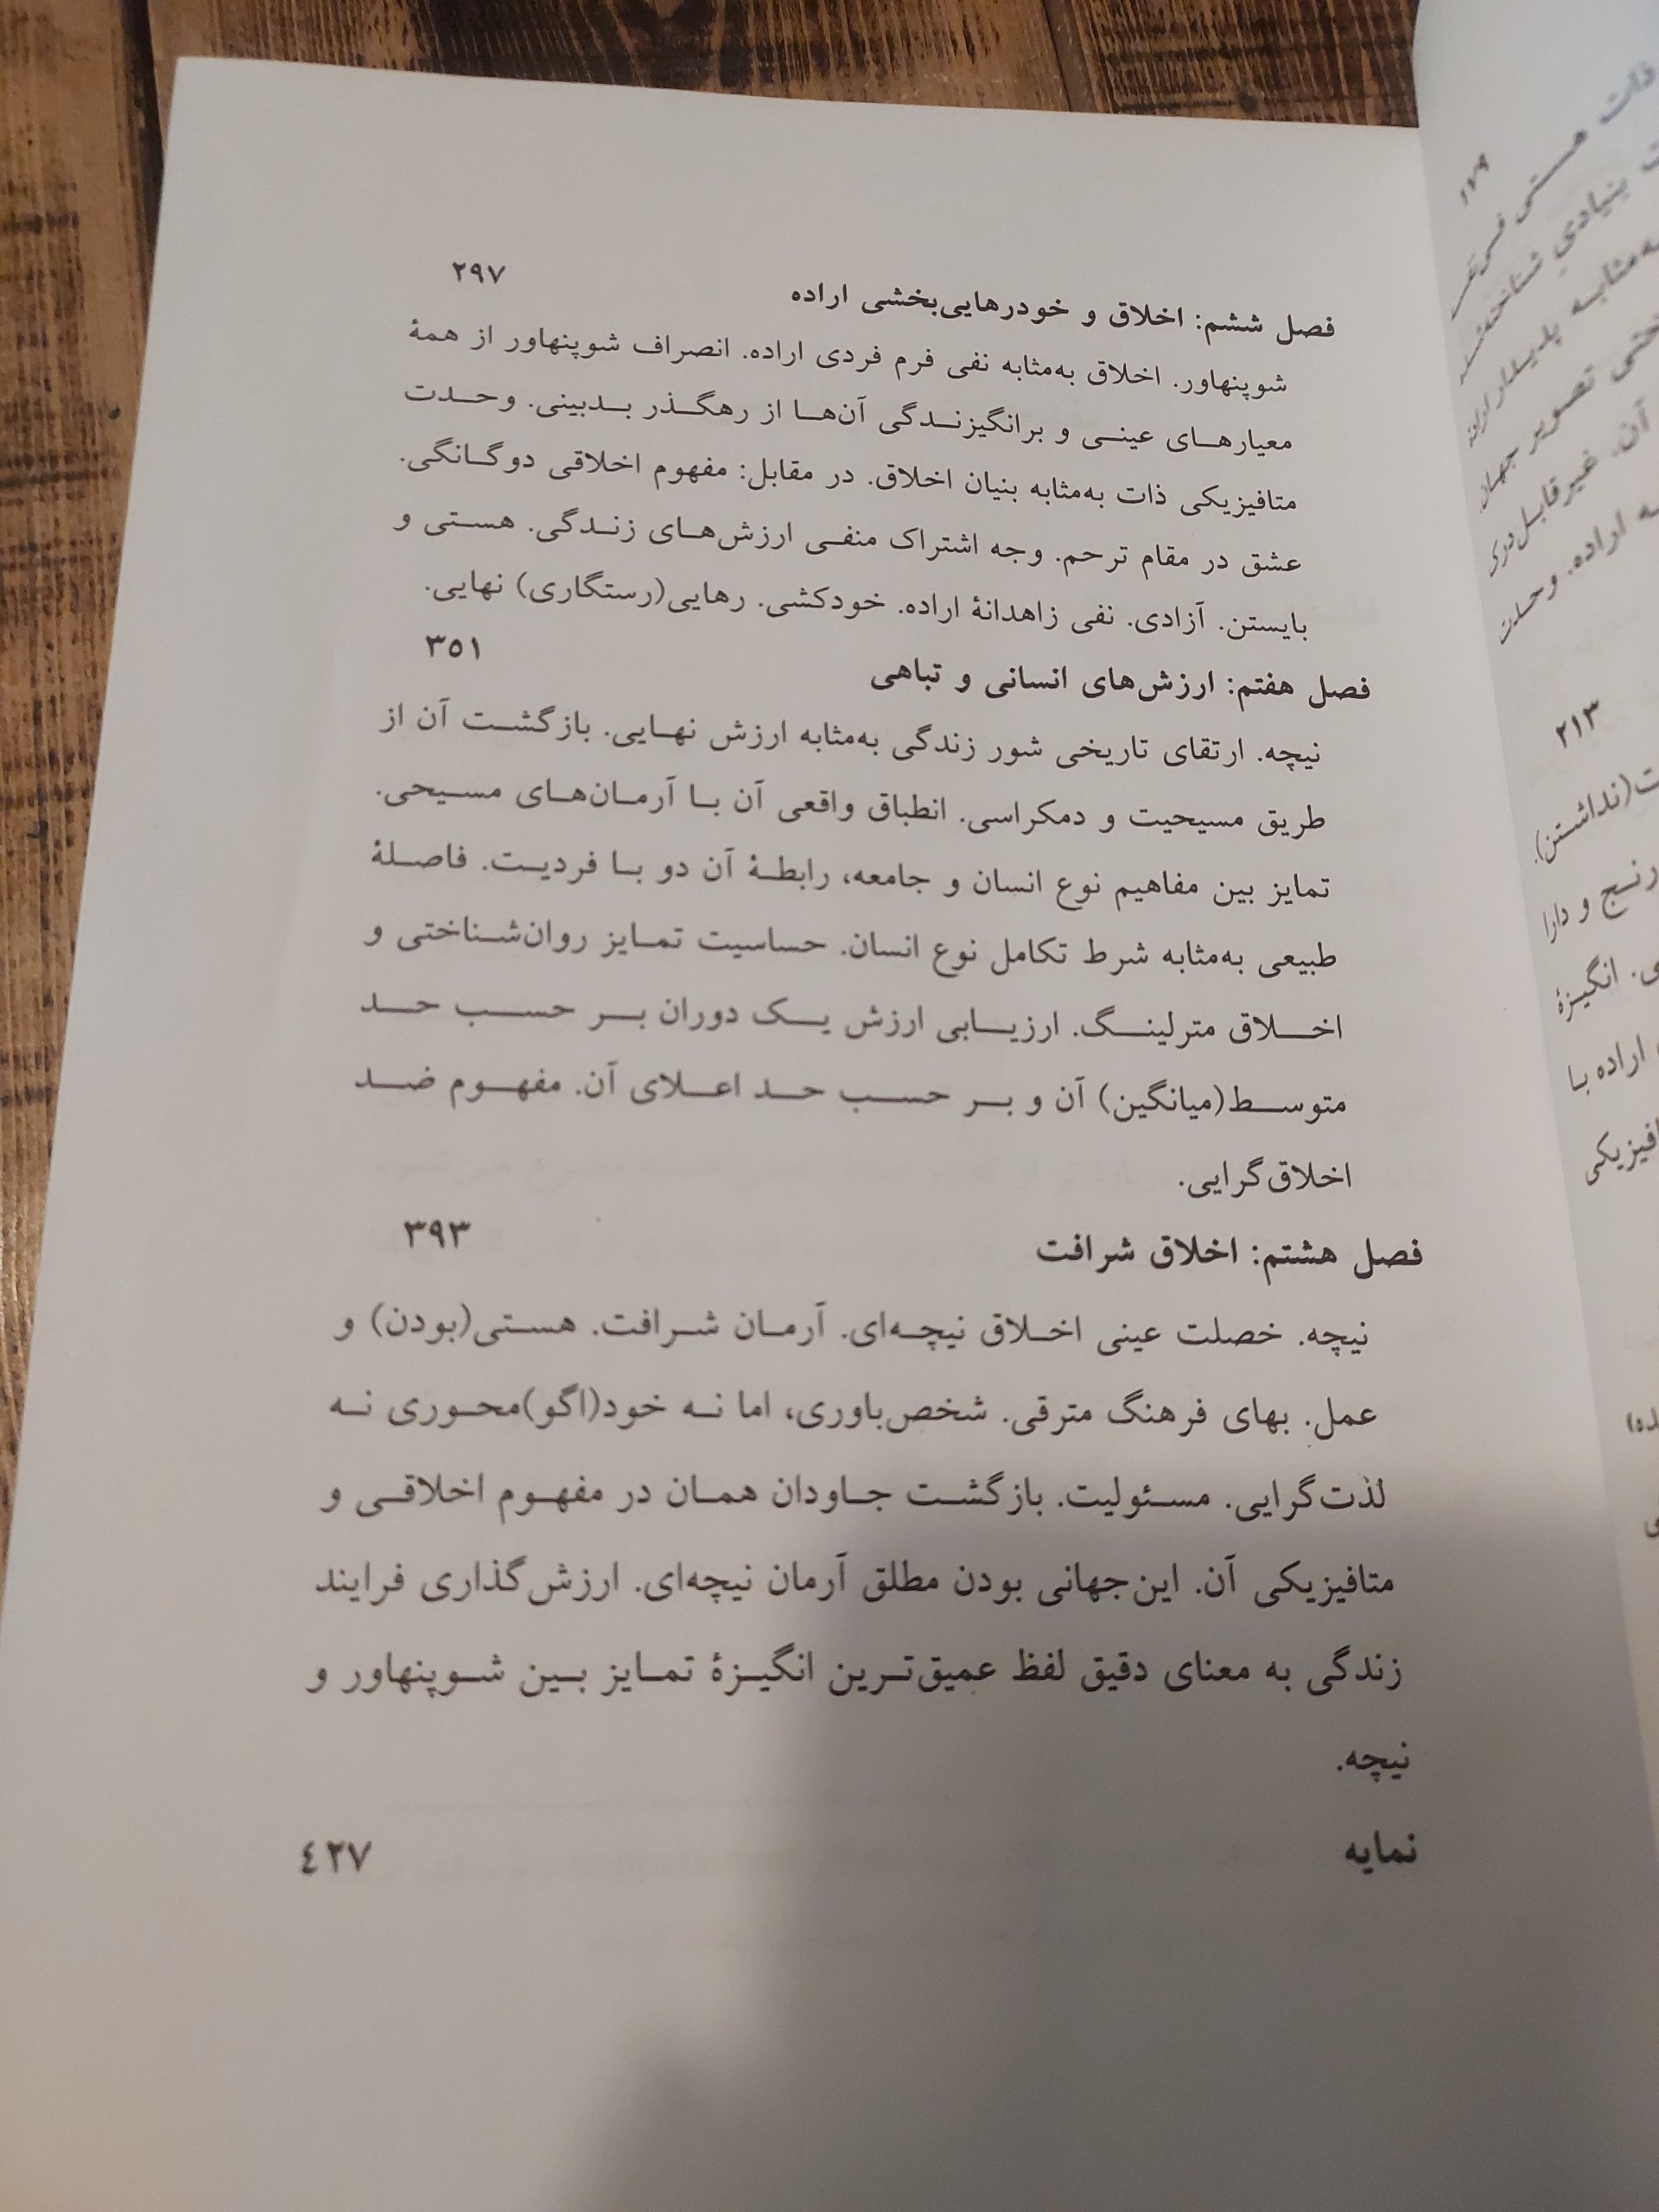 فصل ششم: اخلاق و خودرهایی‌بخشی اراده ۲۹۷
شوپنهاور. اخلاق به‌مثابه نفی فرم فردی اراده. انصراف شوپنهاور از همهٔ
معیارهای عینی و برانگیزندگی آن‌ها از رهگذر بدبینی. وحدت
متافیزیکی ذات به‌مثابه بنیان اخلاق. در مقابل: مفهوم اخلاقی دوگانگی.
عشق در مقام ترحم. وجه اشتراک منفی ارزش‌های زندگی. هستی و
بایستن. آزادی. نفی زاهدانهٔ اراده. خودکشی. رهایی(رستگاری) نهایی.
فصل هفتم: ارزش‌های انسانی و تباهی ۳۵۱
نیچه. ارتقای تاریخی شور زندگی به‌مثابه ارزش نهایی. بازگشت آن از
طریق مسیحیت و دمکراسی. انطباق واقعی آن با آرمان‌های مسیحی.
تمایز بین مفاهیم نوع انسان و جامعه، رابطهٔ آن دو با فردیت. فاصلهٔ
طبیعی به‌مثابه شرط تکامل نوع انسان. حساسیت تمایز روان‌شناختی و
اخلاق مترلینگ. ارزیابی ارزش یک دوران بر حسب حد
متوسط(میانگین) آن و بر حسب حد اعلای آن. مفهوم ضد
اخلاق‌گرایی.
فصل هشتم: اخلاق شرافت ۳۹۳
نیچه. خصلت عینی اخلاق نیچه‌ای. آرمان شرافت. هستی(بودن) و
عمل. بهای فرهنگ مترقی. شخص‌باوری، اما نه خود(اگو)محوری نه
لذت‌گرایی. مسئولیت. بازگشت جاودان همان در مفهوم اخلاقی و
متافیزیکی آن. این‌جهانی بودن مطلق آرمان نیچه‌ای. ارزش‌گذاری فرایند
زندگی به معنای دقیق لفظ عمیق‌ترین انگیزهٔ تمایز بین شوپنهاور و
نیچه.
نمایه ٤٢٧
۱۷۹
ذات هستی
بنیادیِ
به‌مثابه پدیدار اراده
تصویر جهان
آن. غیرقابل‌درک
اراده. وحدت
۲۱۳
(نداشتن).
رنج و دارا
انگیزهٔ
اراده با